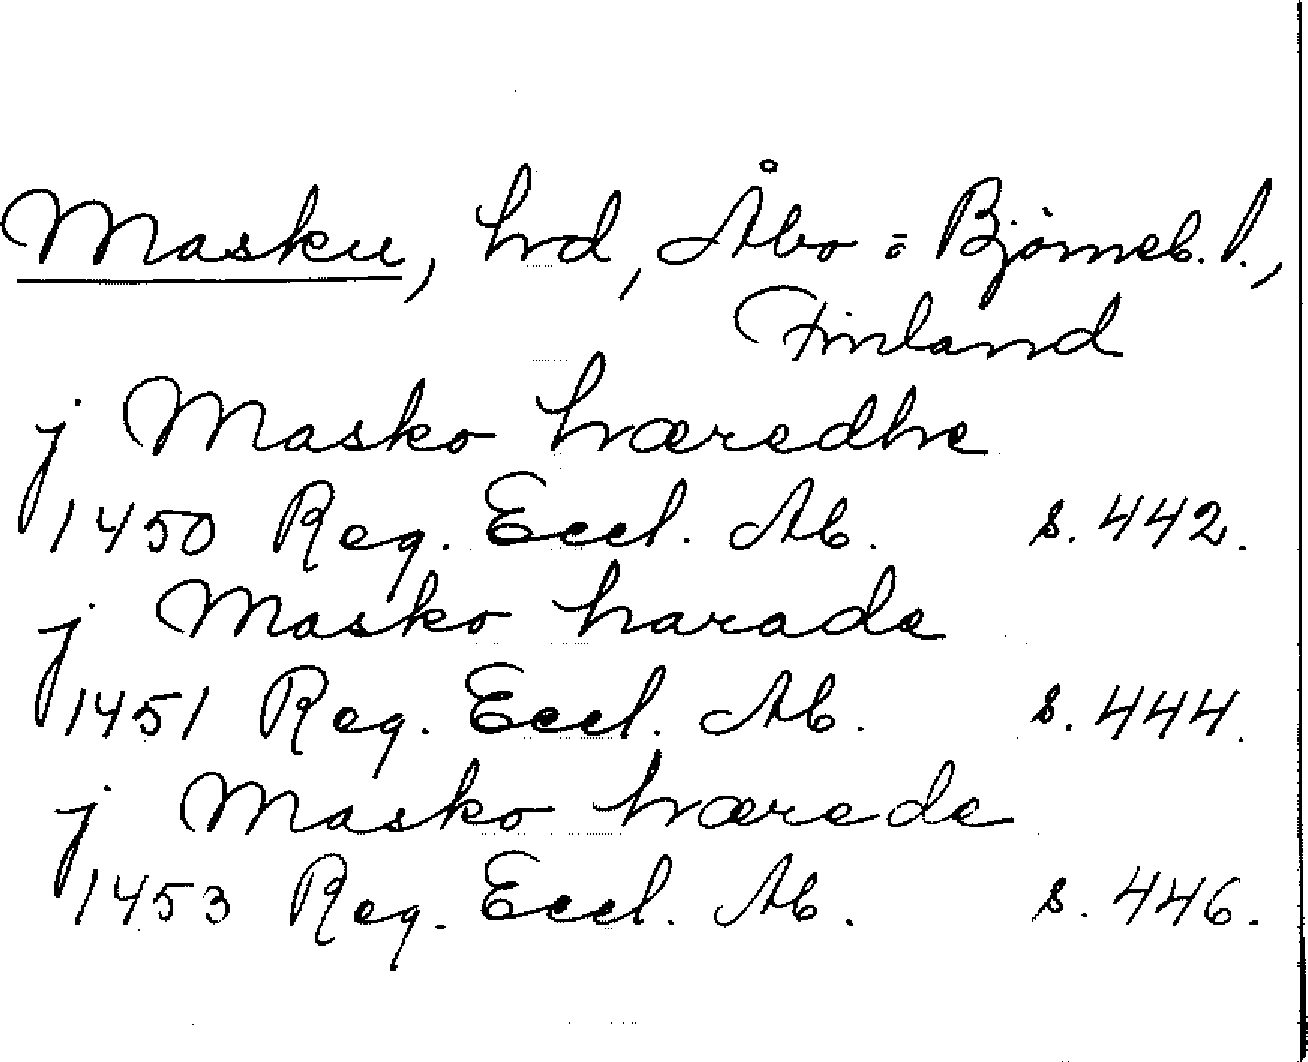 Masku, hd, Åbo = Björneb. l.,
Finland
j Masko hæredhe
1450 Reg. Eccl. Ab. s. 442.
j Masko harade
1451 Reg. Eccl. Ab. s. 444.
j Masko hærede
1453 Reg. Eccl. Ab. s. 446.